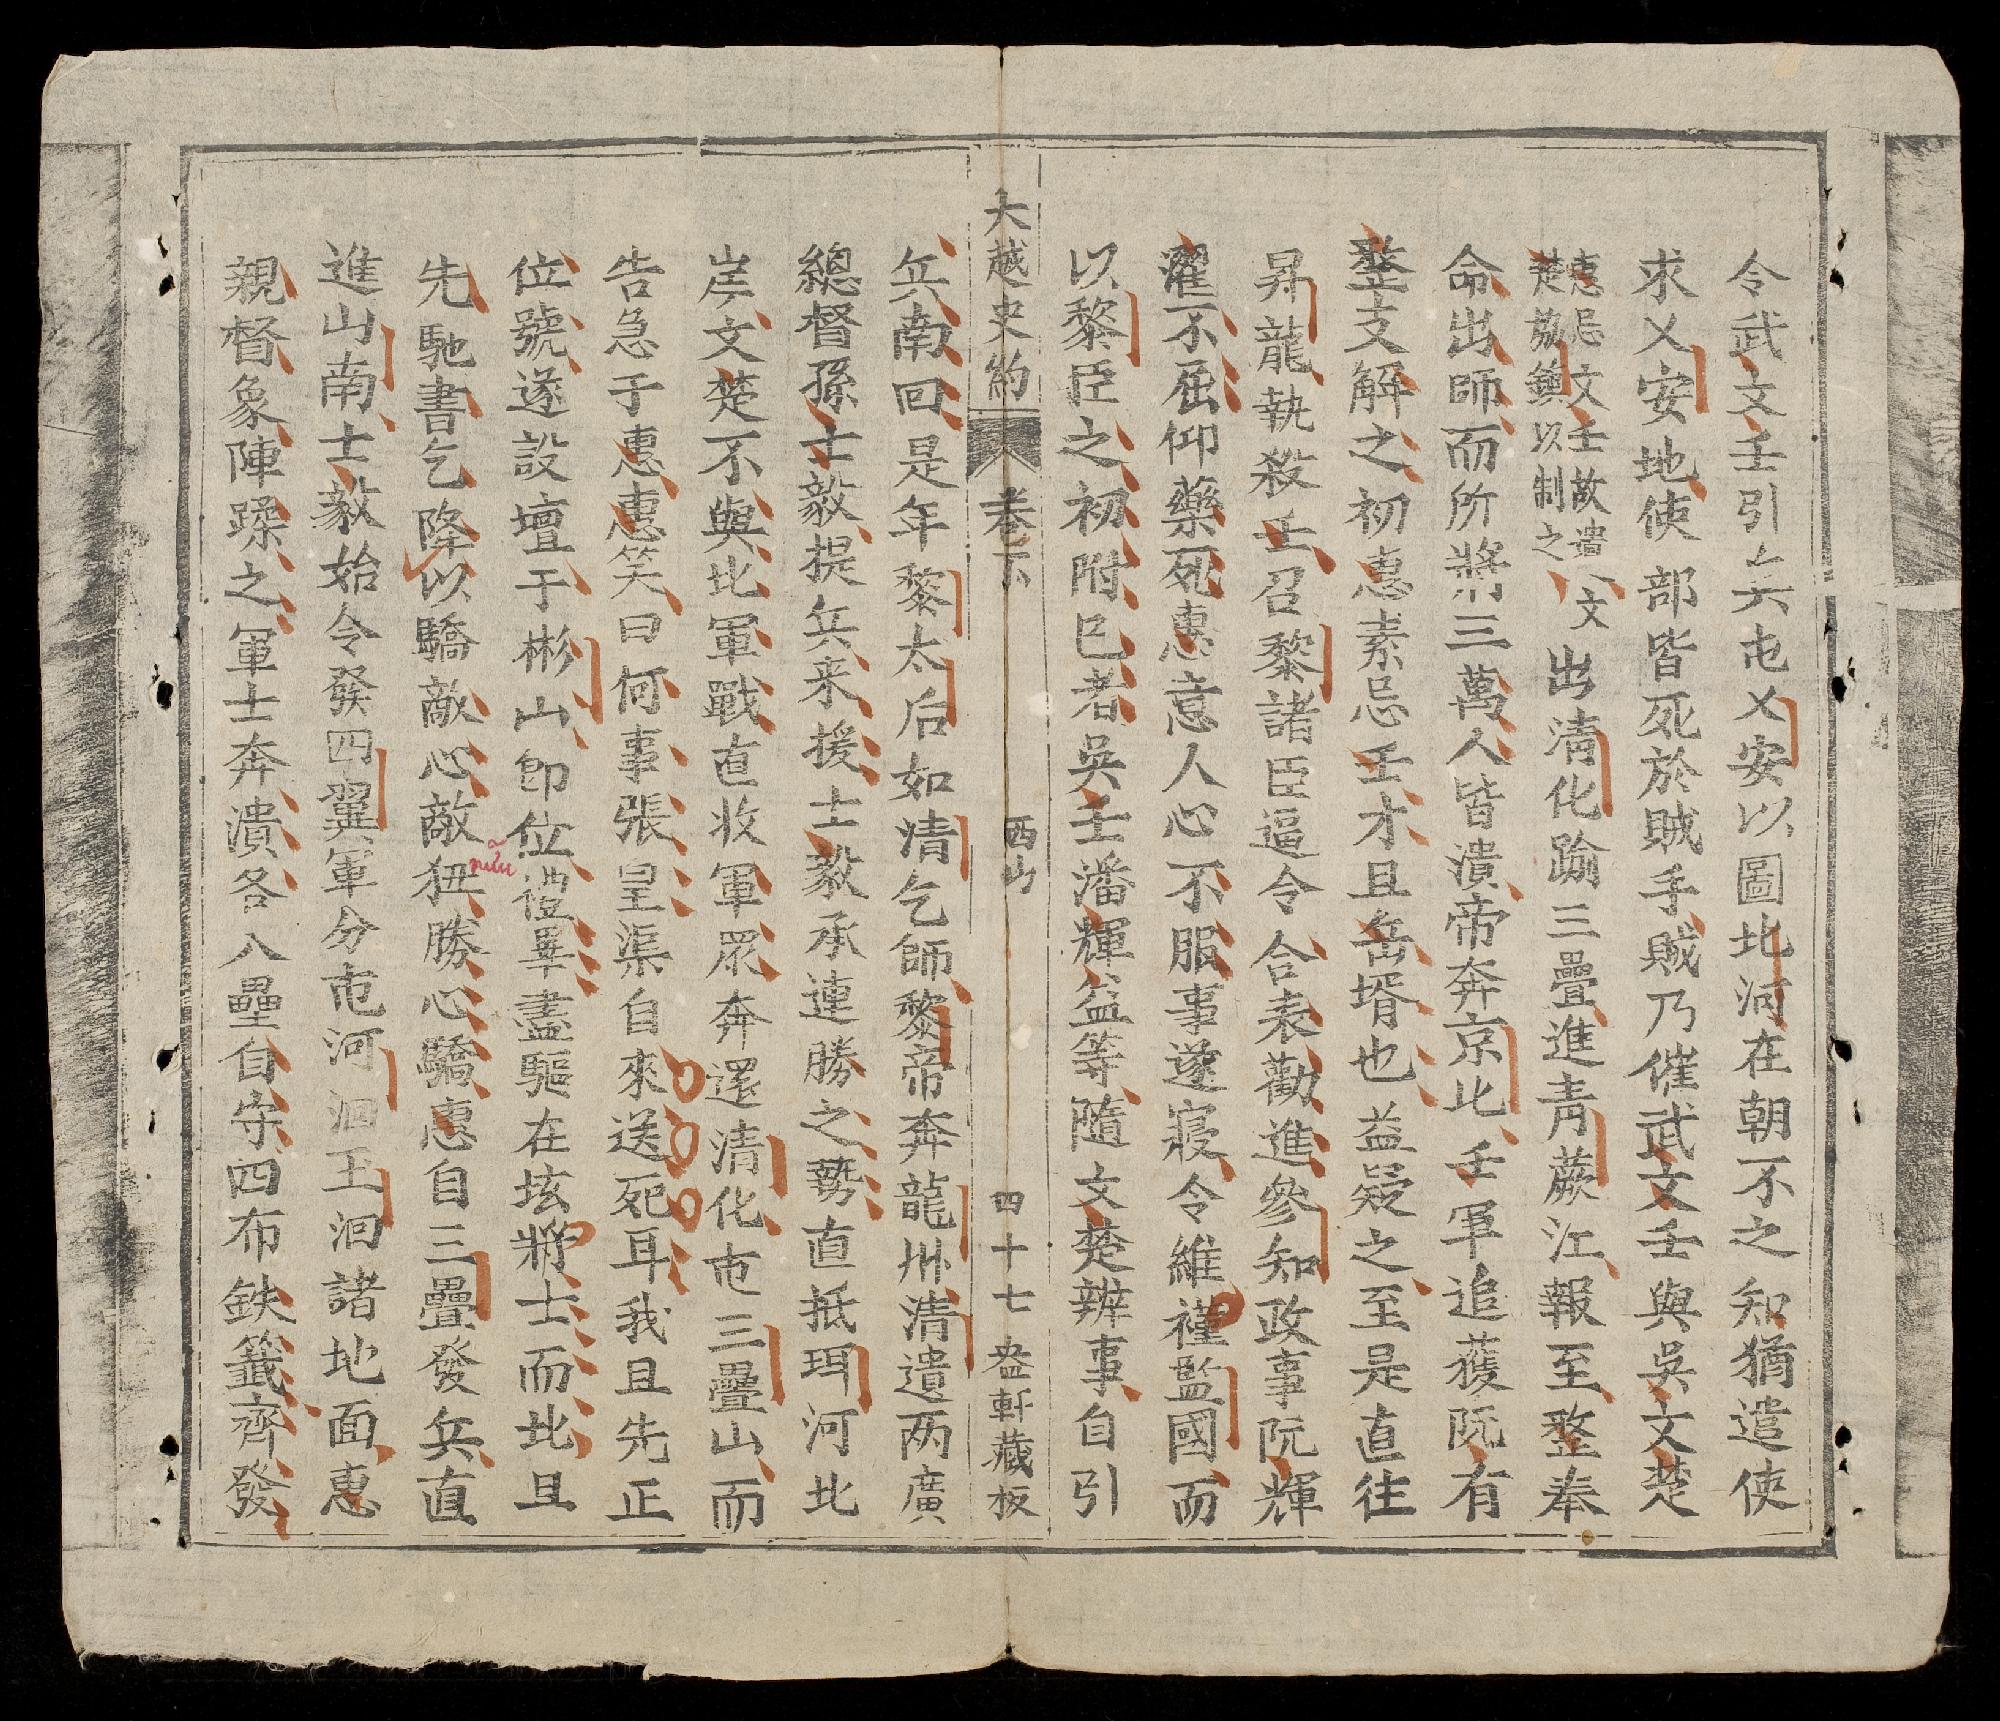 令武文壬引兵屯乂安以圖北河在朝不之知猶遣使
求乂安地使部皆死於賊手賊乃催武文壬與吳文楚
惠忌文壬故遣文
楚協鎮以制之
出清化踰三疊進青蕨江報至整奉
命出師而所將三萬人皆潰帝奔京北壬軍追獲阮有
整支解之初惠素忌壬才且岳壻也益疑之至是直往
昇龍執殺壬召黎諸臣逼令合表勸進參知政事阮輝
濯不屈仰藥死惠意人心不服事遂寢令維禋監國而
以黎臣之初附己者吳壬潘輝益等隨文楚辦事自引
大越史約 卷下 西山 四十七 盎軒藏板
兵南回是年黎太后如清乞師黎帝奔龍州清遺两廣
總督孫士毅提兵来援士毅承連勝之勢直抵珥河北
岸文楚不與北軍戰直收軍眾奔還清化屯三疊山而
告急于惠惠笑曰何事張皇渠自來送死耳我且先正
位號遂設壇于彬山卽位禮畢盡驅在垓將士而北且
先馳書乞降以驕敵心敵狃勝心驕惠自三疊發兵直
進山南士毅始令發四翼軍分屯河洄玉洄諸地面惠
親督象陣蹂之軍士奔潰各入壘自守四布鉄籤齊發
nữu